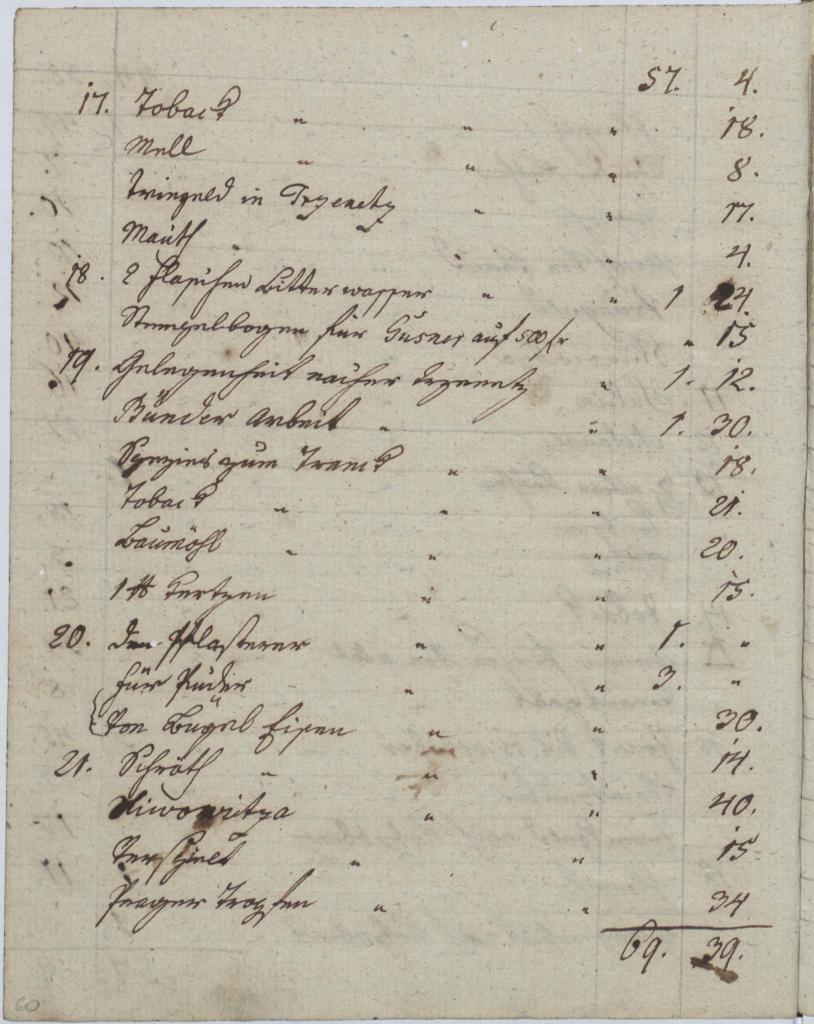 57. 4.
17. Toback " " " 18.
Mell " " " 8.
Trinkgeld in Trzenetz " " 17.
Mauth " " " 4.
18. 2 flaschen Bitter wasser " " 1 24.
Stempelbogen für Gusner auf 500 fr " 15
19. Gelegenheit nacher Trzenetz " 1. 12.
Bünder Arbeit " " 1. 30.
Spezies zum Tranck " " 18.
Toback " " " 21.
Baumöhl " " " 20.
1 ℔ Kertzen " " 15.
20. den Pflasterer " " 1. "
für Puder " " 3. "
von Bügel Eisen " " 30.
21. Schroth " " " 14.
Sliwowitza " " 40.
Verspielt " " 15
Prager Tropfen " " 34
69. 39.
60